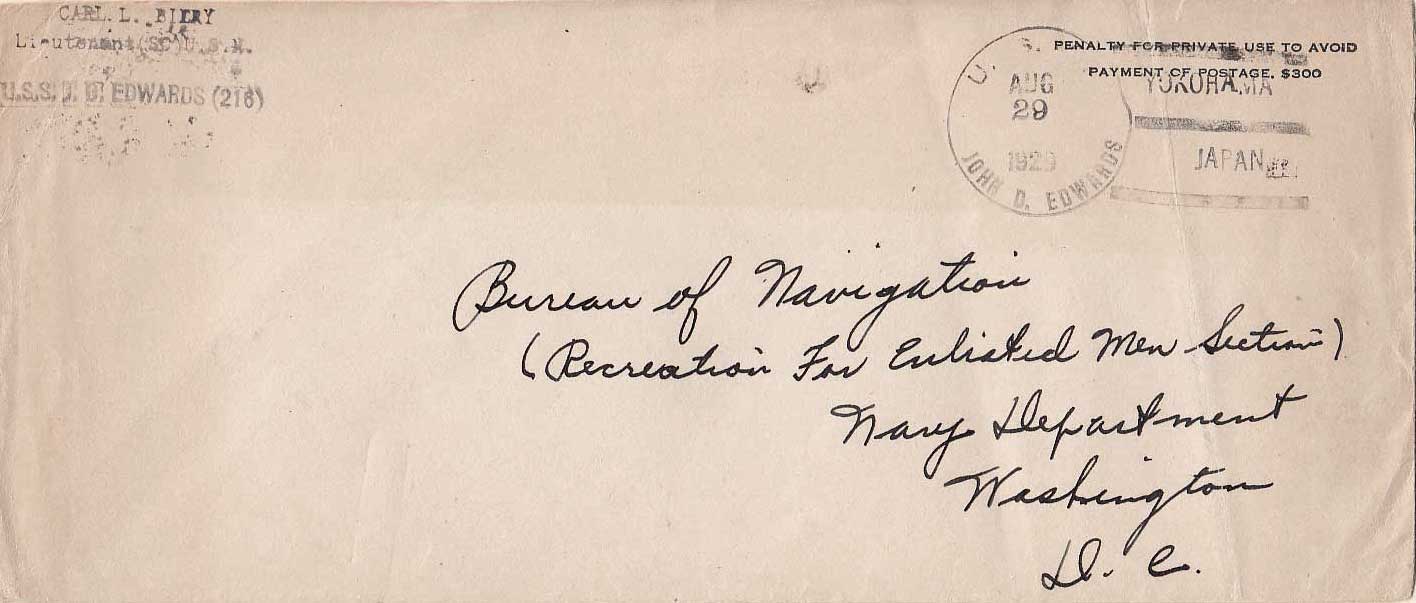 CARL. L. BIERY
Lieutenant(SC)U.S.N.
U.S.S. J. D. EDWARDS (216)
U. S.
AUG
29
1929
JOHN D. EDWARDS
PENALTY FOR PRIVATE USE TO AVOID
PAYMENT OF POSTAGE, $300
YOKOHAMA
JAPAN
Bureau of Navigation
(Recreation For Enlisted Men Section)
Navy Department
Washington
D. C.